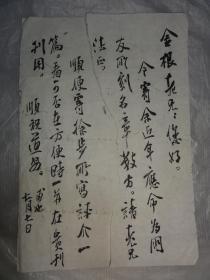 金根老兄：您好。
今寄余近年应命为朋
友所刻名章数方。请老兄
法正。
顺便寄徐步所写评介一
篇，看可否在方便时一并在贵刊
刊用。
顺祝道安
七月七日